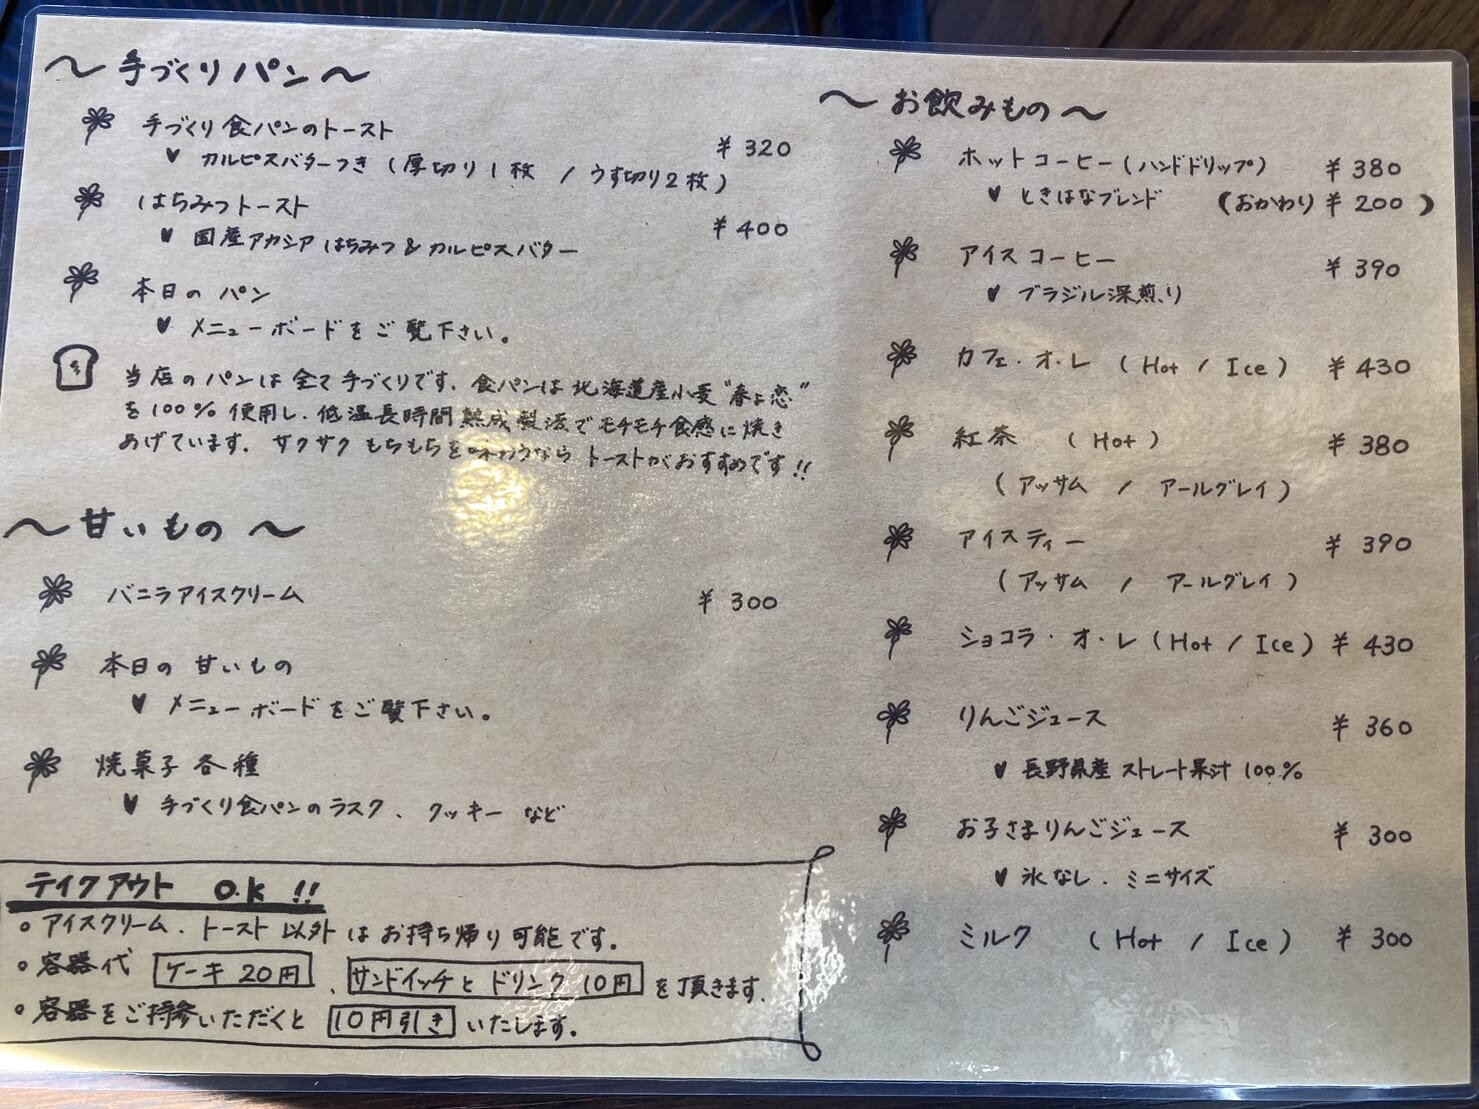 ～手づくりパン～
手づくり食パンのトースト ¥320
♥ カルピスバターつき (厚切り1枚 / うす切り2枚)
はちみつトースト ¥400
♥ 国産アカシアはちみつ&カルピスバター
本日のパン
♥ メニューボードをご覧下さい。
当店のパンは全て手づくりです. 食パンは北海道産小麦"春よ恋"
を100%使用し、低温長時間熟成製法でモチモチ食感に焼き
あげています. サクサクもちもちを味わうならトーストがおすすめです!!
～甘いもの～
バニラアイスクリーム ¥300
本日の甘いもの
♥ メニューボードをご覧下さい。
焼菓子各種
♥ 手づくり食パンのラスク、クッキーなど
テイクアウト O.K !!
・アイスクリーム、トースト以外はお持ち帰り可能です.
・容器代 ケーキ20円、サンドイッチとドリンク10円を頂きます.
・容器をご持参いただくと10円引きいたします.
～お飲みもの～
ホットコーヒー(ハンドドリップ) ¥380
♥ ときはなブレンド (おかわり ¥200)
アイスコーヒー ¥390
♥ ブラジル深煎り
カフェ・オ・レ (Hot / Ice) ¥430
紅茶 (Hot) ¥380
(アッサム / アールグレイ)
アイスティー ¥390
(アッサム / アールグレイ)
ショコラ・オ・レ (Hot / Ice) ¥430
りんごジュース ¥360
♥ 長野県産ストレート果汁100%
お子さまりんごジュース ¥300
♥ 氷なし、ミニサイズ
ミルク (Hot / Ice) ¥300